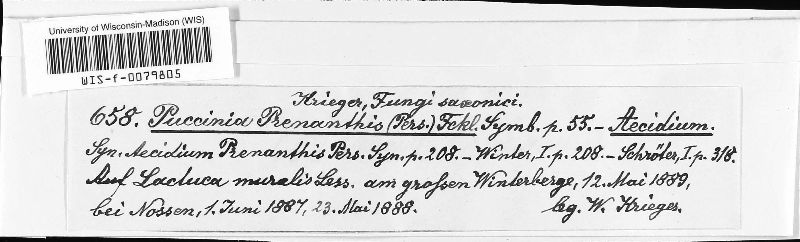 University of Wisconsin-Madison (WIS)
WIS-f-0079805
Krieger, Fungi saxonici.
658. Puccinia Prenanthis (Pers.) Fckl. Symb. p. 55. – Aecidium.
Syn. Aecidium Prenanthis Pers. Syn. p. 208. – Winter, I. p. 208. – Schröter, I. p. 318.
Auf Lactuca muralis Less. am grossen Winterberge, 12. Mai 1889,
bei Nossen, 1. Juni 1887, 23. Mai 1888. leg. W. Krieger.